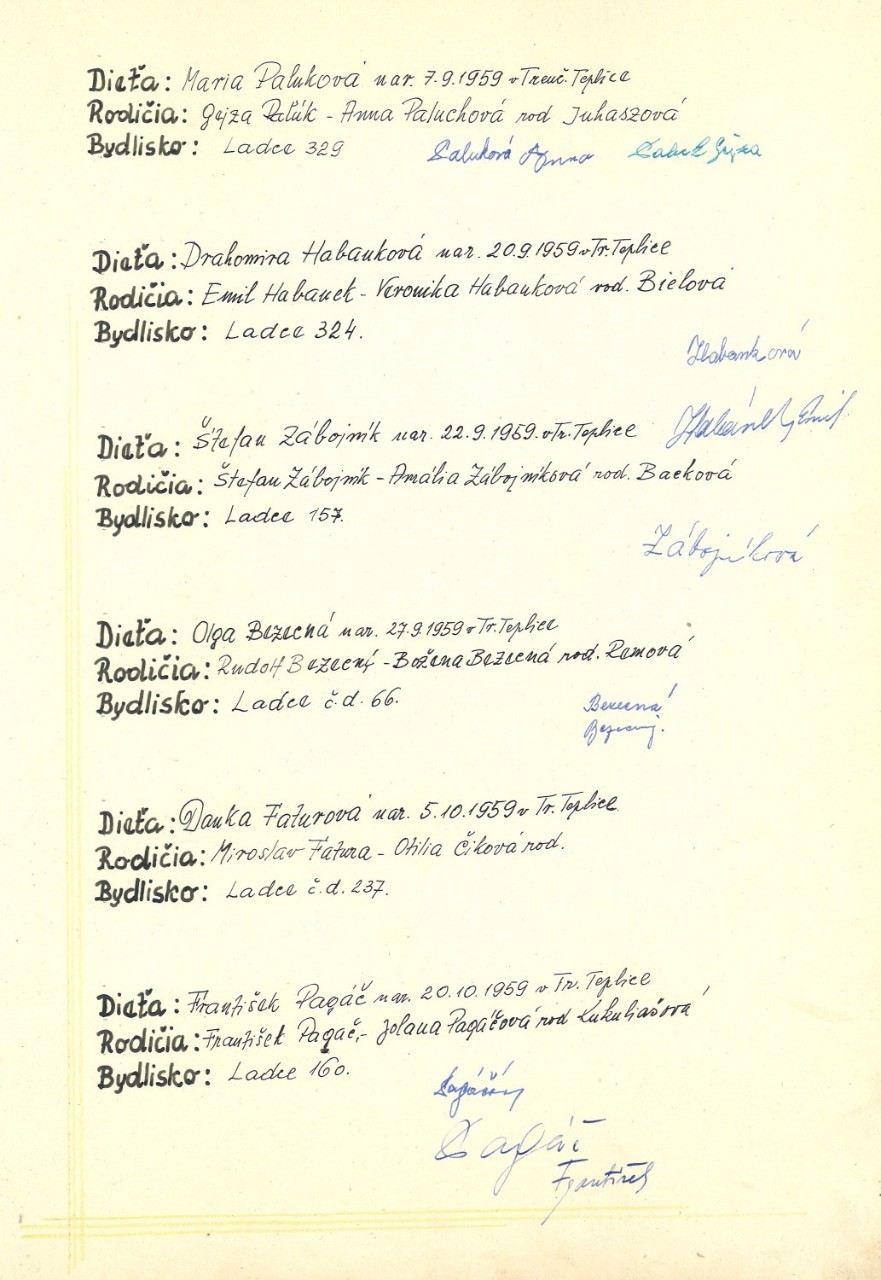 Dieťa: Maria Paluková nar. 7.9.1959 v Trenč. Teplice
Rodičia: Gejza Palúk - Anna Paluchová rod Juhaszová
Bydlisko: Ladce 329
Paluková Anna
Dieťa: Drahomira Habanková nar. 20.9.1959 v Tr. Teplice
Rodičia: Emil Habanek - Veronika Habanková rod. Bielová
Bydlisko: Ladce 324.
Habanková
Dieťa: Štefan Zábojník nar. 22.9.1959. v Tr. Teplice
Habánek Emil
Rodičia: Štefan Zábojník - Amália Zábojníková rod. Backová
Bydlisko: Ladce 157.
Zábojníková
Dieťa: Olga Bezecná nar. 27.9.1959 v Tr. Teplice
Rodičia: Rudolf Bezecný - Božena Bezecná rod. Remová
Bydlisko: Ladce č.d. 66.
Bezecná
Bezecný.
Dieťa: Danka Faturová nar. 5.10.1959 v Tr. Teplice
Rodičia: Miroslav Fatura - Otilia Čiková rod.
Bydlisko: Ladce č.d. 237.
Dieťa: František Pagáč nar. 20.10.1959 v Tr. Teplice
Rodičia: František Pagáč, - Jolana Pagáčová rod Kukuliašová
Bydlisko: Ladce 160.
Pagáč
František